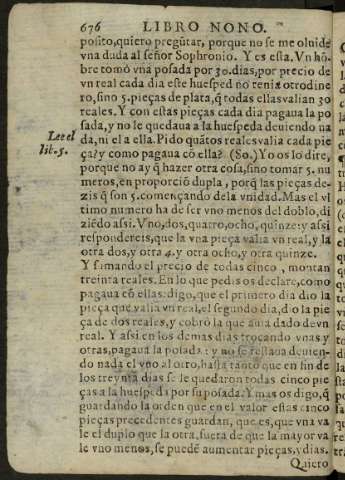 676 LIBRO NONO.
posito, quiero pregũtar, porque no se me oluide
vna duda al señor Sophronio. Y es esta. Vn hõ-
bre tomó vna posada por 30. dias, por precio de
vn real cada dia este huesped no tenia otro dine
ro, sino 5. pieças de plata, q̃ todas ellas valian 30
reales. Y con estas pieças cada dia pagaua la po
sada, y no le quedaua a la huespeda deuiendo na
da, ni el a ella. Pido quãtos reales valia cada pie
Lee el
lib. 5.
ça? y como pagaua cõ ella? (So.) Yo os lo dire,
porque no ay q̃ hazer otra cosa, sino tomar 5. nu
meros, en proporciõ dupla, porq̃ las pieças de-
zis q̃ son 5. començando dela vnidad. Mas el vl
timo numero ha de ser vno menos del doblo, di
ziẽdo assi. Vno, dos, quatro, ocho, quinze: y assi
respondereis, que la vna pieça valia vn real, y la
otra dos, y otra 4. y otra ocho, y otra quinze.
Y sumando el precio de todas cinco, montan
treinta reales. En lo que pedis os declare, como
pagaua cõ ellas: digo, que el primero dia dio la
pieça que valia vn real, el segundo dia, dio la pie
ça de dos reales, y cobró la que auia dado de vn
real. Y assi en los demas dias trocando vnas y
otras, pagaua la posada: y no se restaua deuien-
do nada el vno al otro, hasta tanto que en fin de
los treynta dias se le quedaron todas cinco pie
ças a la huespeda por su posada. Y mas os digo, q̃
guardando la orden que en el valor estas cinco
pieças precedentes guardan, que es, que vna va
le el duplo que la otra, fuera de que la mayor va
le vno menos, se puedẽ aumentar pieças, y dias.
Quiero